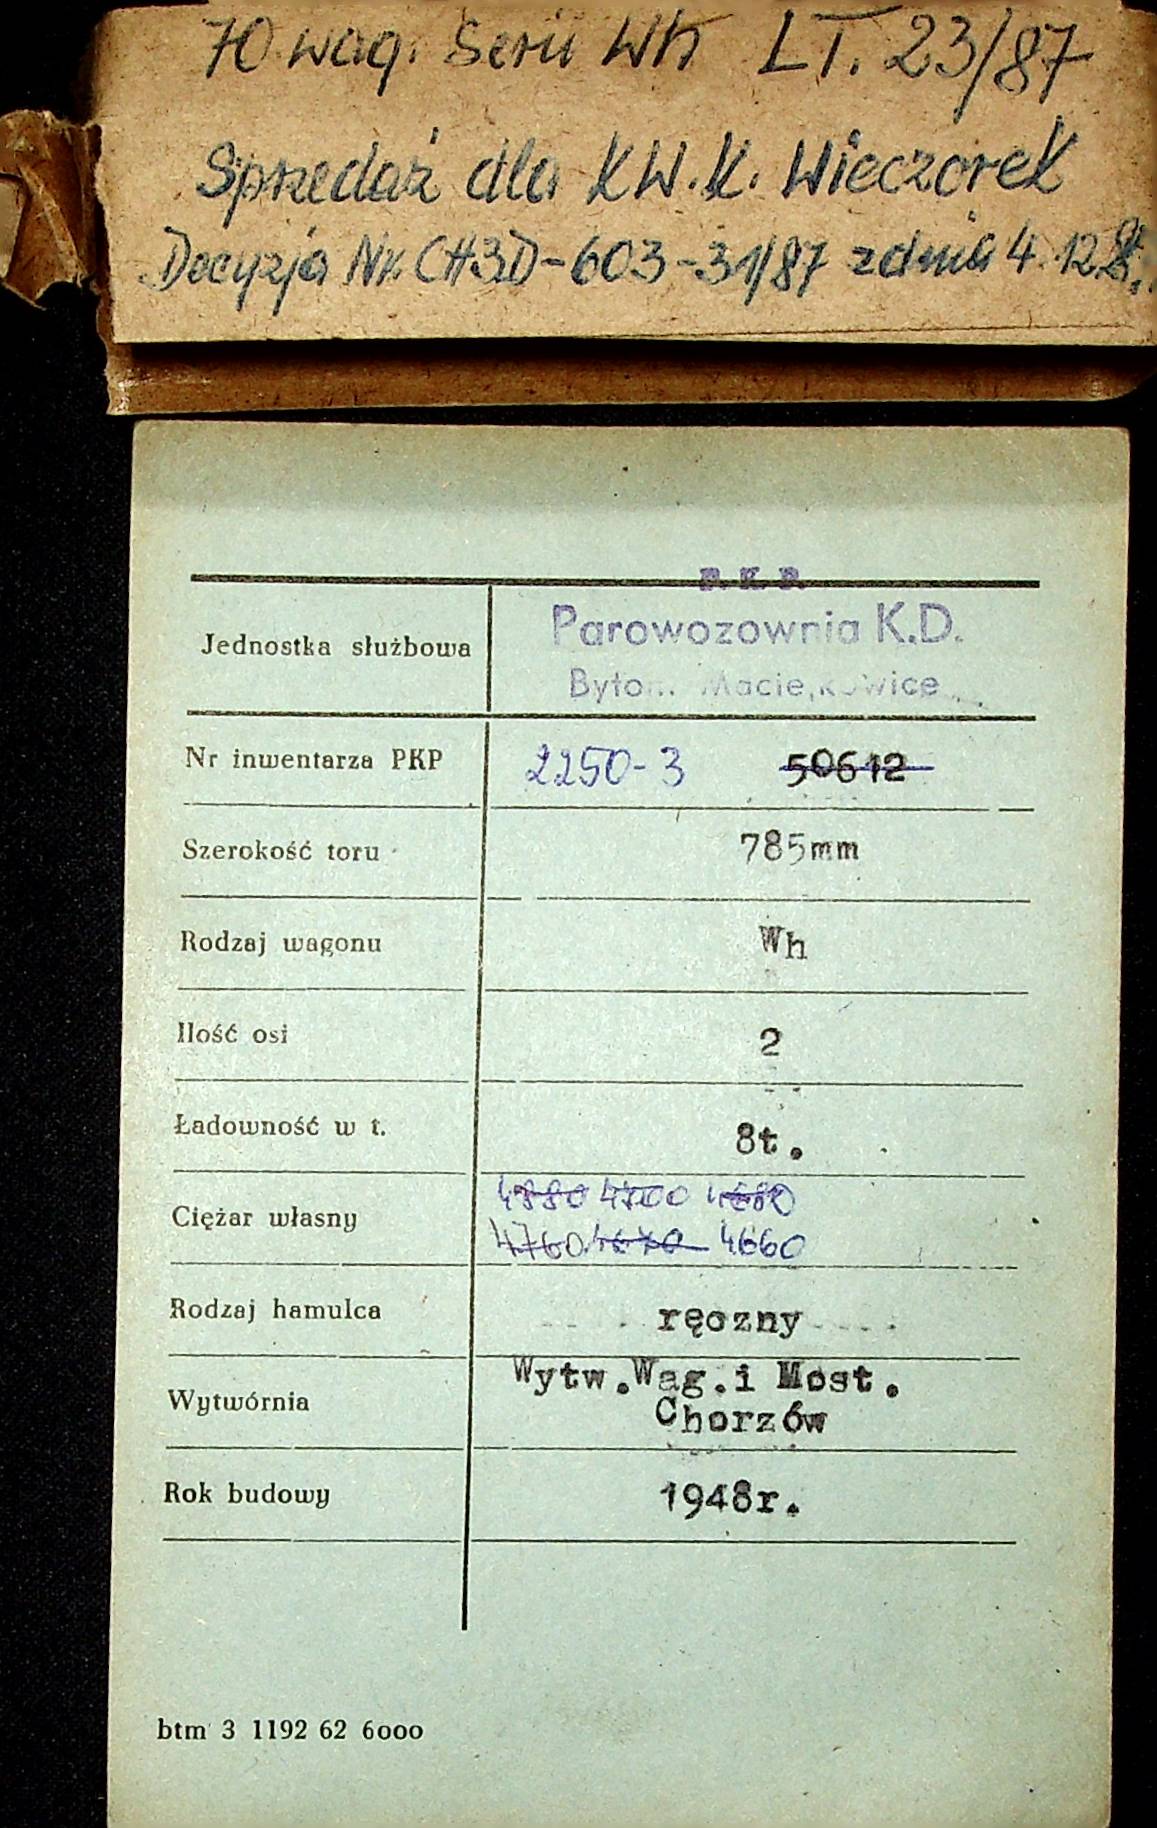 70 wag. Serii Wh LT. 23/87
Sprzedaż dla KW.K. Wieczorek
Decyzja Nr. CH3D-603-31/87 z dnia 4.12.8
P. K. P.
Jednostka służbowa Parowozownia K.D.
Bytom Maciejkowice
Nr inwentarza PKP 2250-3 50612
Szerokość toru 785mm
Rodzaj wagonu Wh
Ilość osi 2
Ładowność w t. 8t.
4880 4700 4680
Ciężar własny 4760 4670 4660
Rodzaj hamulca ręczny
Wytw.Wag.i Most.
Wytwórnia Chorzów
Rok budowy 1948r.
btm 3 1192 62 6000